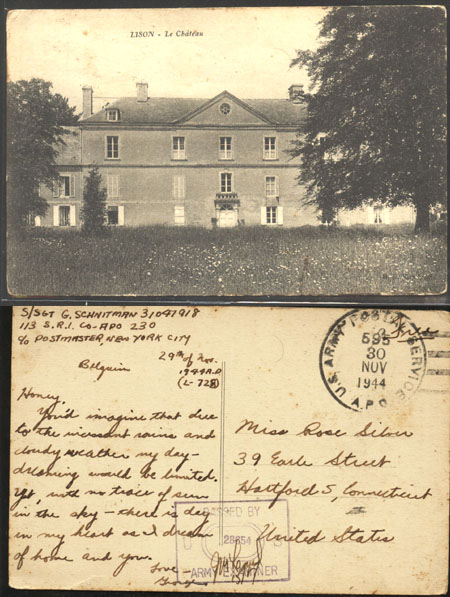 LISON - Le Château
S/SGT G. SCHNITMAN 31047918
113 S.R.I. CO-APO 230
c/o POSTMASTER, NEW YORK CITY
Belgium
29th of Nov.
1944 A.D.
(L-728)
Honey,
You'd imagine that due
to the incessant rains and
cloudy weather my day-
dreaming would be limited.
Yet, with no trace of sun
in the sky - there is
in my heart as I dream
of home and you.
Love -
Free
U.S. ARMY POSTAL SERVICE
595
30
NOV
1944
A.P.O.
Miss Rose Silver
39 Earle Street
Hartford 5, Connecticut
United States
PASSED BY
28654
ARMY EXAMINER